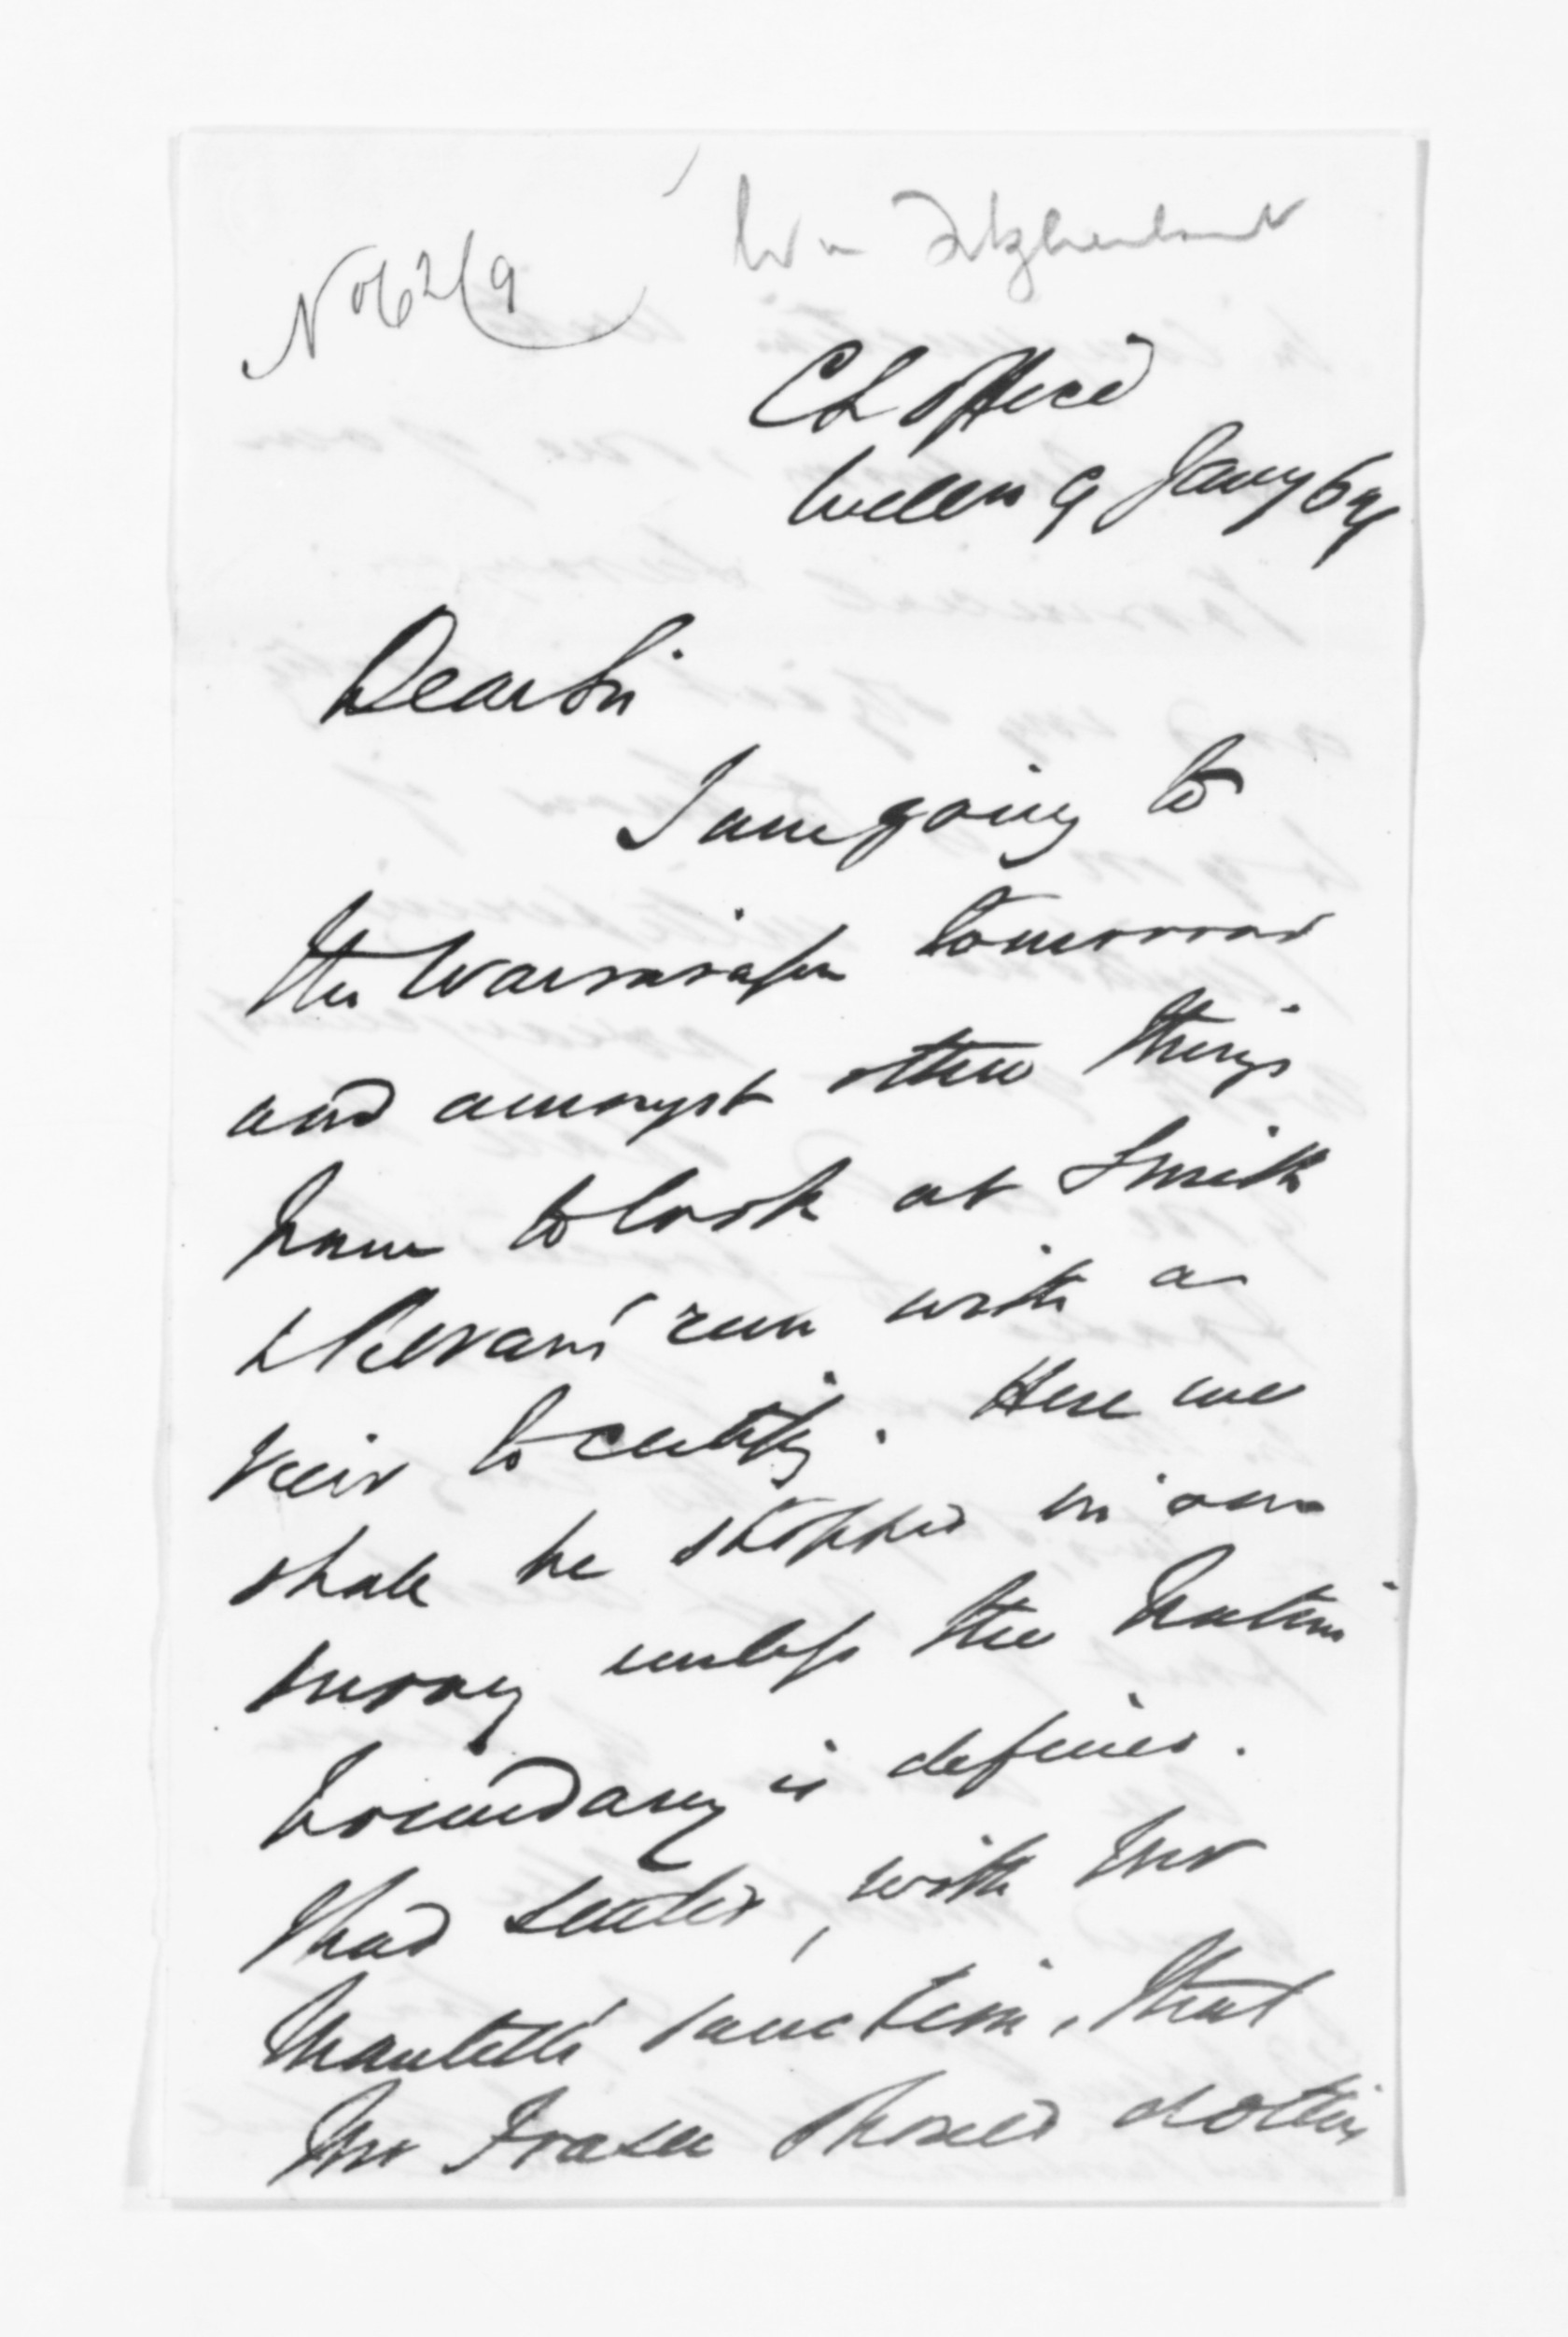 Wm Fitzherbert
No 62/9
C L Office
Welln 9 Jany 64
Dear Sir
I am going to
the Wairarapa tomorrow
and amongst other things
have to look at Smith
& Revans' run with a
view to certify. Here we
shall be stopped in our
survey unless the Native
boundary is defined.
I had settled, with Mr
Mantell's sanction, that
Mr Fraser should do this